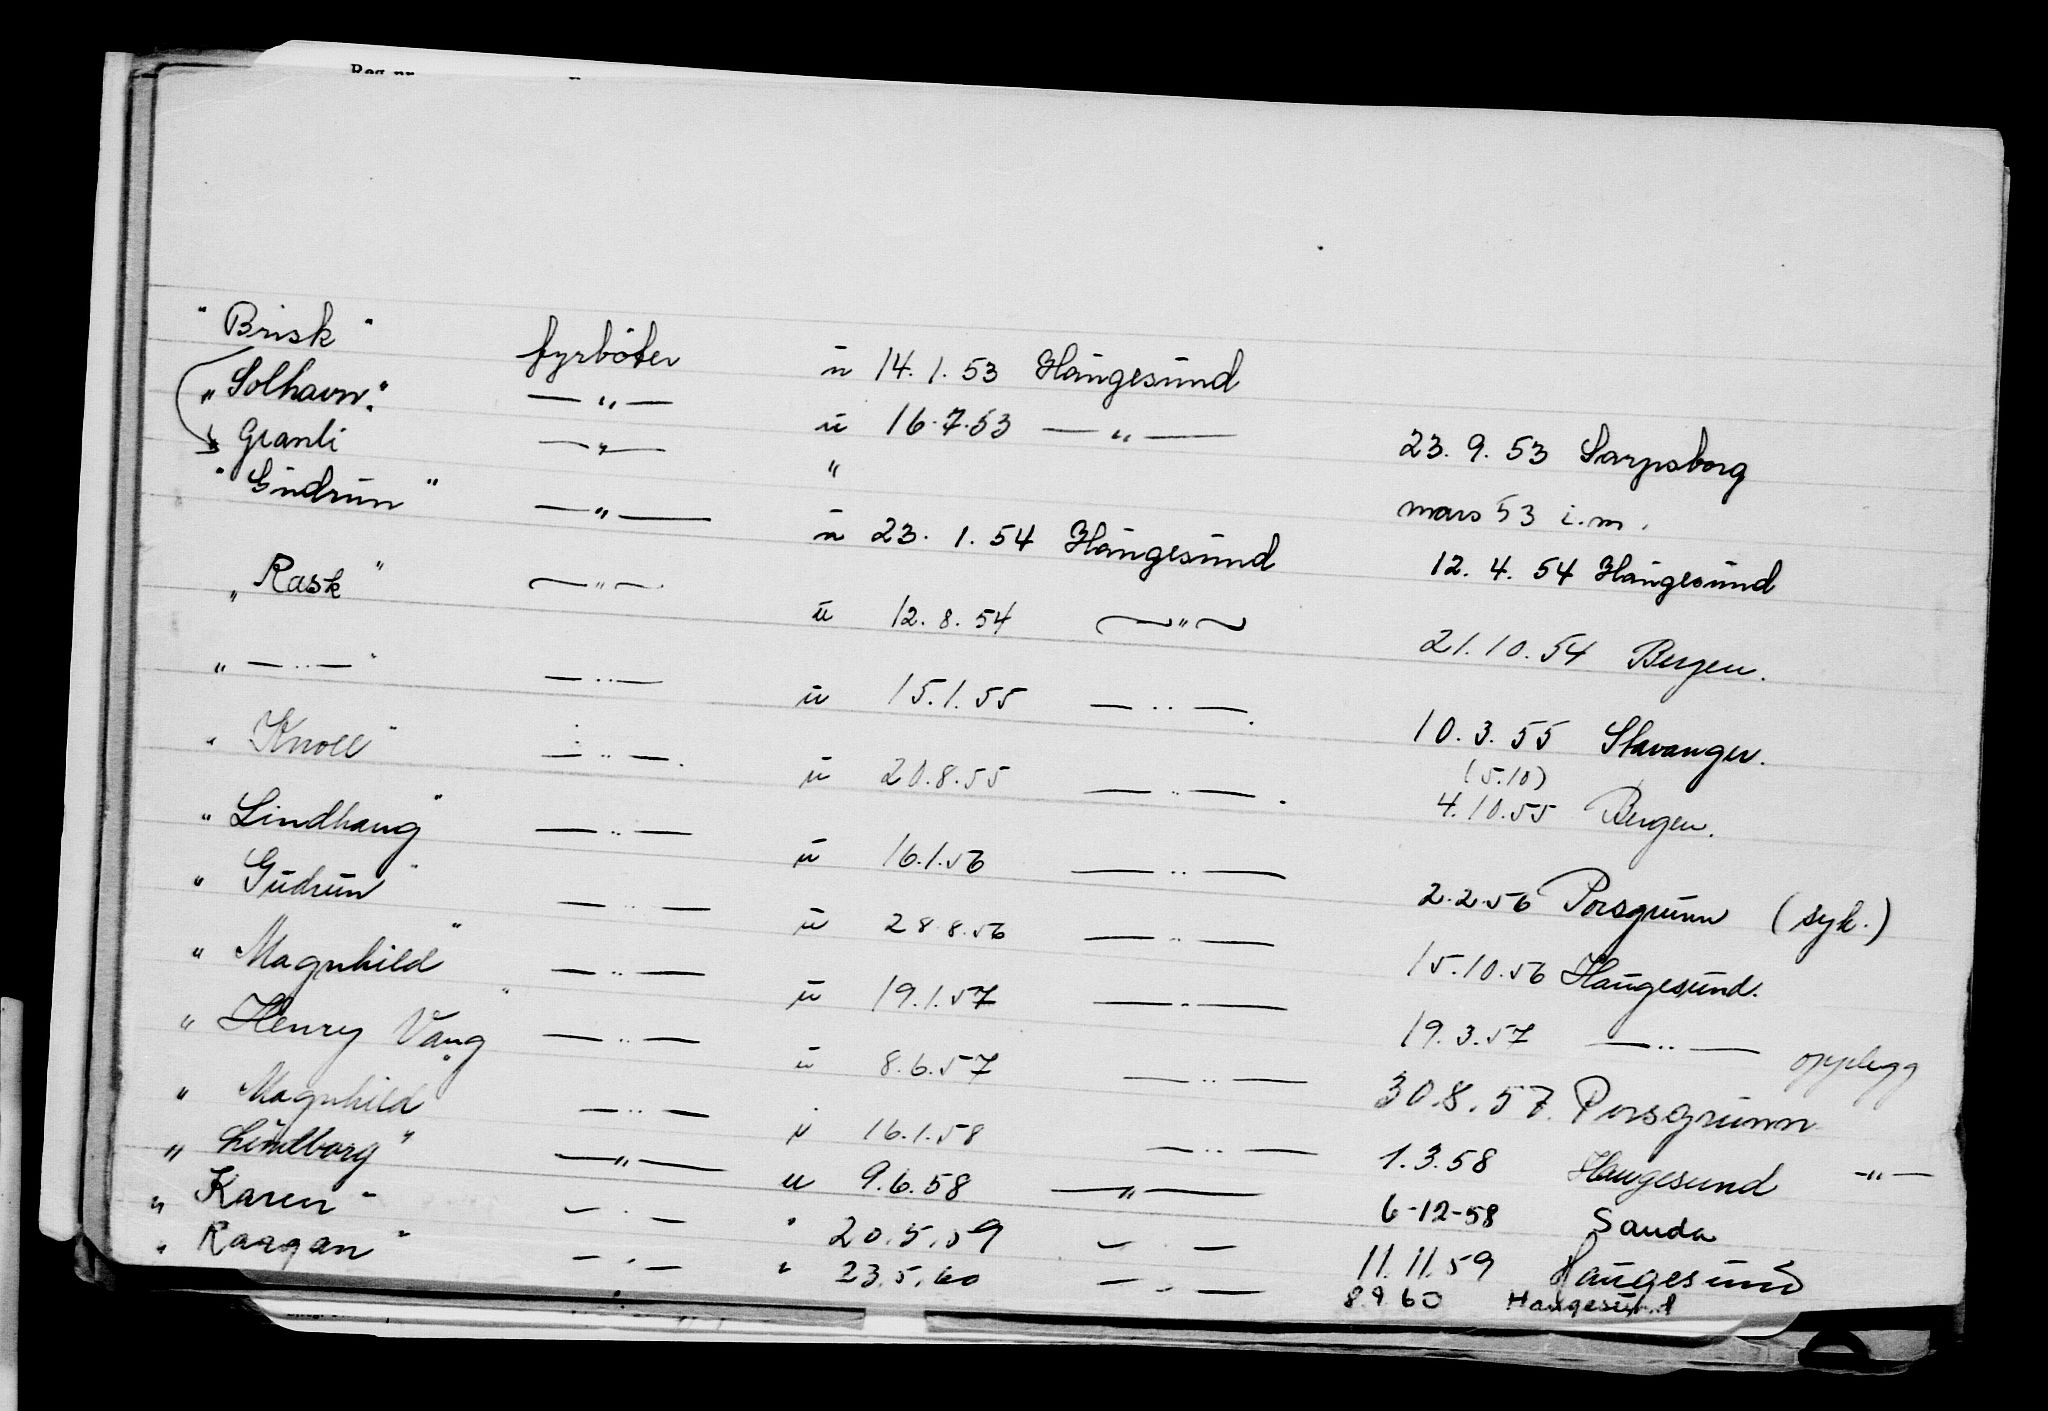 "Brisk" fyrbøter u 14.1.53 Haugesund
"Solhavn" —"— u 16.7.53 —"— 23.9.53 Sarpsborg
Granli —"— " mars 53 i.m.
"Gudrun" —"— u 23.1.54 Haugesund 12.4.54 Haugesund
"Rask" —"— u 12.8.54 —"— 21.10.54 Bergen.
"—"—" —"— u 15.1.55 —"—. 10.3.55 Stavanger.
(5.10)
"Knoll" —"—. u 20.8.55 —"—. 4.10.55 Bergen.
"Lindhaug" —"— u 16.1.56 —"— 2.2.56 Porsgrunn (syk.)
"Gudrun" —"— u 28.8.56 —"— 15.10.56 Haugesund.
"Magnhild" —"— u 19.1.57 —"— 19.3.57 —"— opplegg
"Henry Vang" —"— u 8.6.57 —"— 30.8.57. Porsgrunn
"Magnhild" —"— u 16.1.58 —"— 1.3.58 Haugesund —"—
"Lindborg" —"— u 9.6.58 —"— 6-12-58 Sauda
"Karen" —"— " 20.5.59 —"— 11.11.59 Haugesund
"Rargan" —"— " 23.5.60 —"— 8.9.60 Haugesund